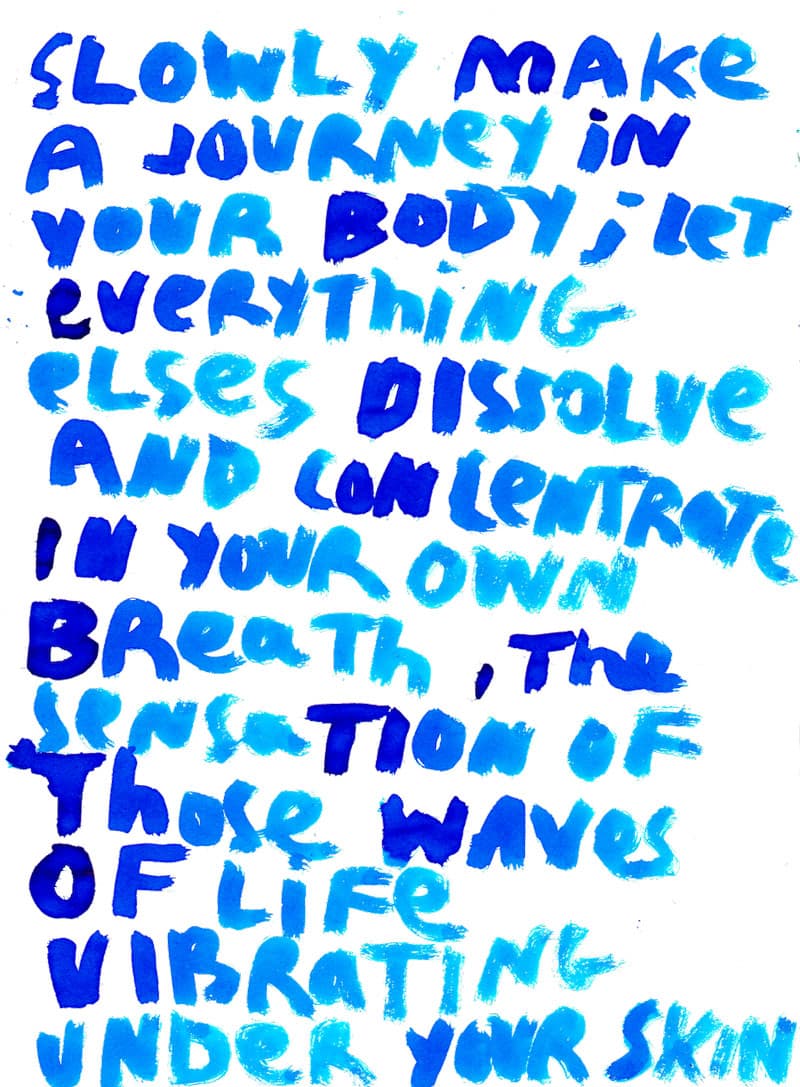 SLOWLY MAKe
A JOURNey iN
YOUR BODY ; LeT
eVeRYThiNG
eLSeS DISSOLVe
AND CONCeNTRaTe
IN YOUR OWN
BReaTh , The
SeNSaTION OF
Those WAVes
OF LiFe
VIBRaTING
UNDeR YOUR SKIN